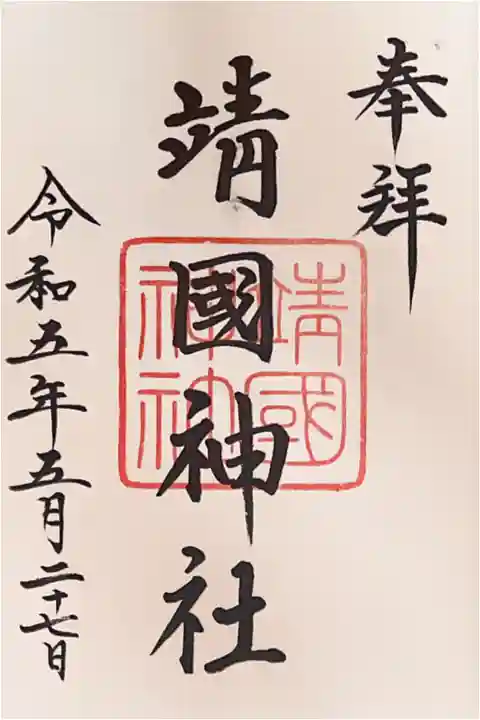 奉拜
靖國神社
靖國神社
令和五年五月二十七日